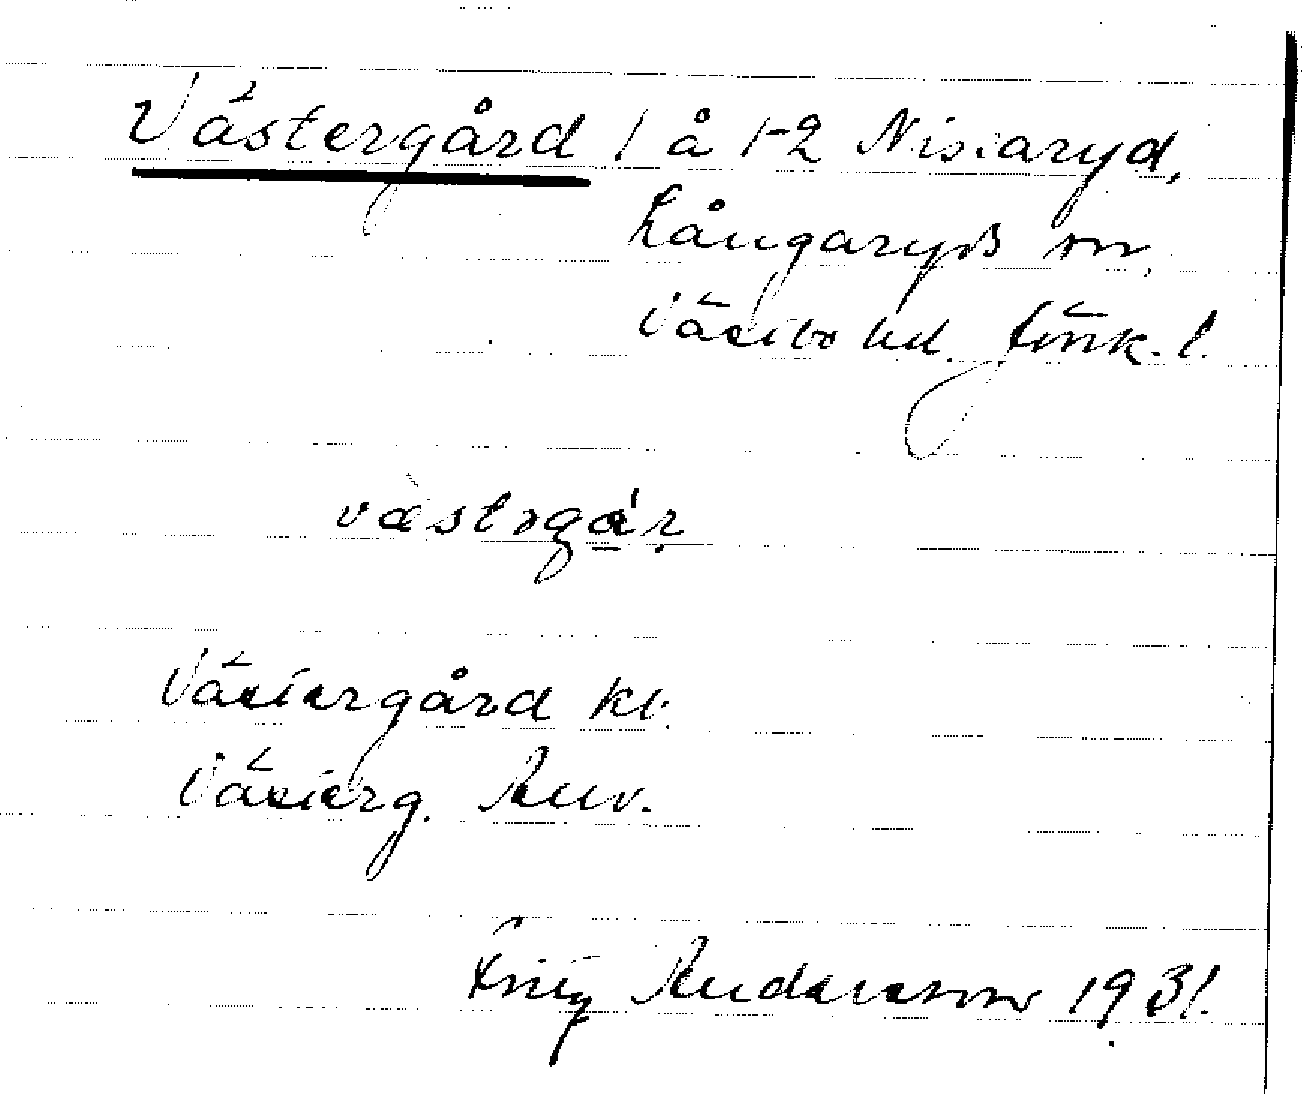 Västergård 1 å 1-2 Nissaryd,
Långaryds sn,
Västbo hd. Jönk. l.
västrgår
Västergård kt.
Västerg. Auv.
Fritz Andersson 1931.